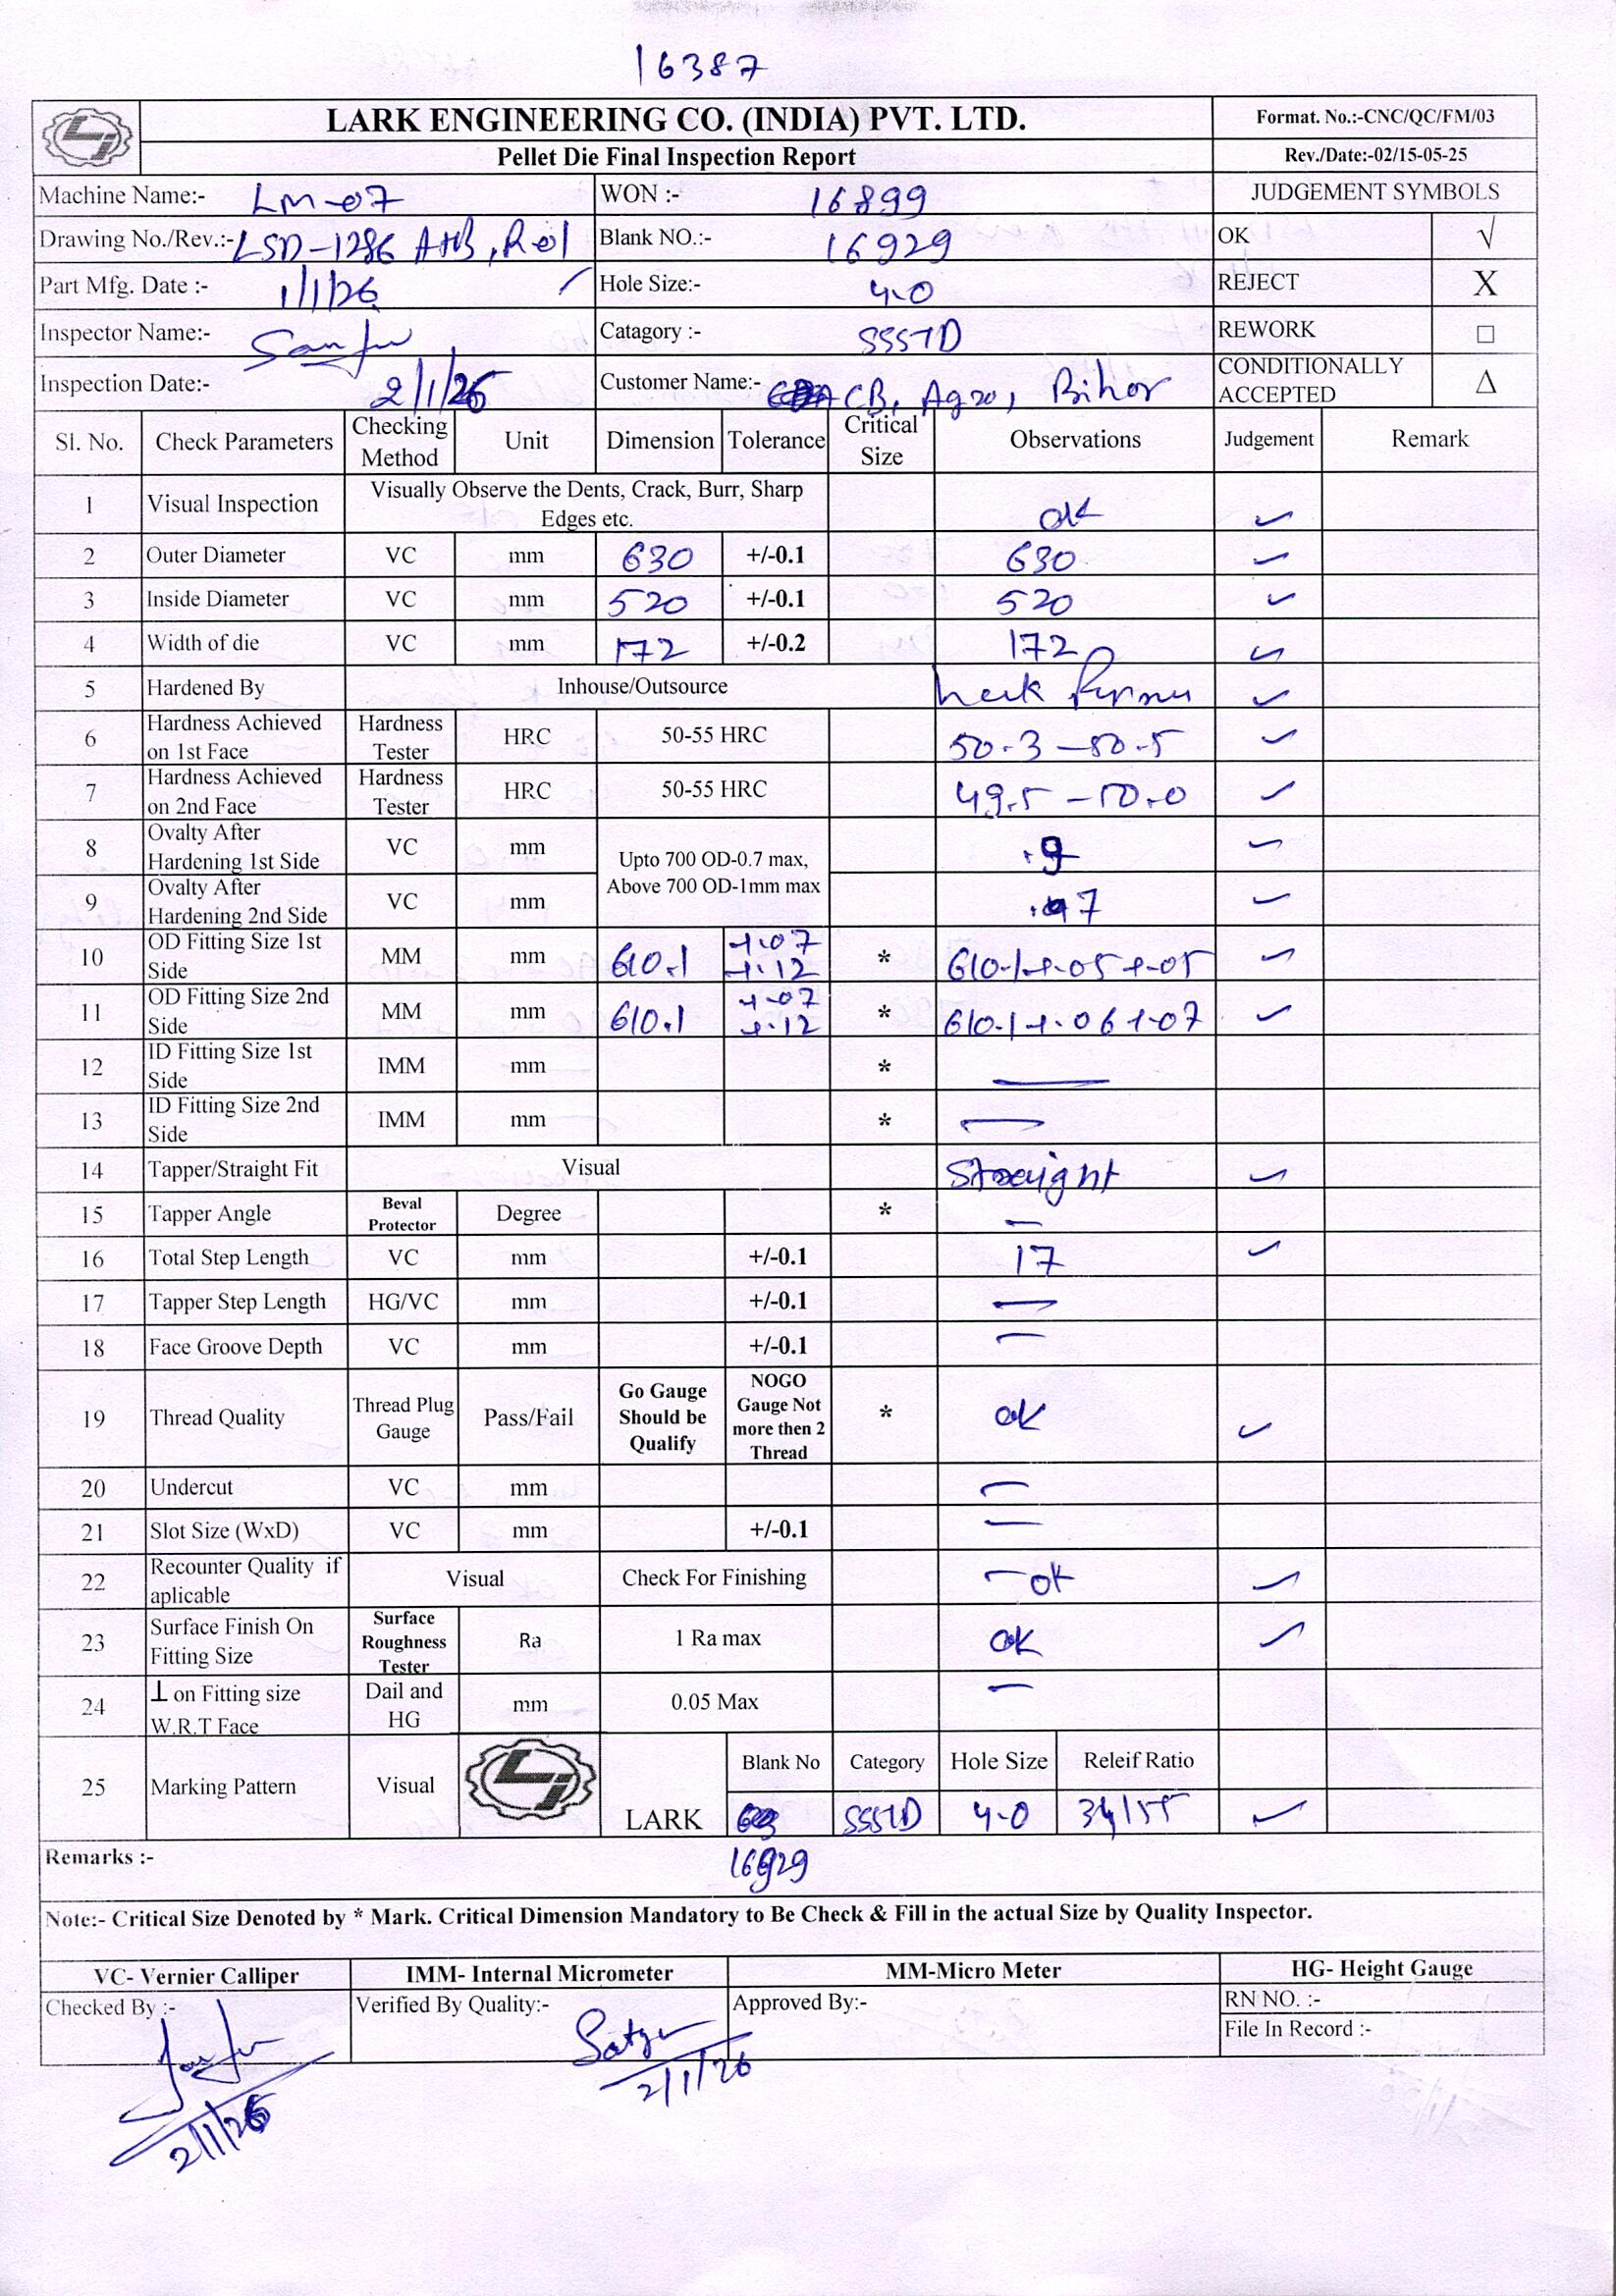 16387
LARK ENGINEERING CO. (INDIA) PVT. LTD.
Format. No.:-CNC/QC/FM/03
Pellet Die Final Inspection Report
Rev./Date:-02/15-05-25
Machine Name:- LM-07 WON :- 16899 JUDGEMENT SYMBOLS
Drawing No./Rev.:- LSD-1286 Blank NO.:- 16929 OK √
Part Mfg. Date :- 1/1/26 Hole Size:- 4.0 REJECT X
Inspector Name:- Catagory :- SSSTD REWORK □
Inspection Date:- 2/1/26 Customer Name:- CB, Agro, Bihar CONDITIONALLY ACCEPTED Δ
Sl. No. Check Parameters Checking Method Unit Dimension Tolerance Critical Size Observations Judgement Remark
1 Visual Inspection Visually Observe the Dents, Crack, Burr, Sharp Edges etc. ok ✓
2 Outer Diameter VC mm 630 +/-0.1 630 ✓
3 Inside Diameter VC mm 520 +/-0.1 520 ✓
4 Width of die VC mm 172 +/-0.2 172 ✓
5 Hardened By Inhouse/Outsource ✓
6 Hardness Achieved on 1st Face Hardness Tester HRC 50-55 HRC 50.3-50.5 ✓
7 Hardness Achieved on 2nd Face Hardness Tester HRC 50-55 HRC 49.5-50.0 ✓
8 Ovalty After Hardening 1st Side VC mm Upto 700 OD-0.7 max, Above 700 OD-1mm max ✓
9 Ovalty After Hardening 2nd Side VC mm ✓
10 OD Fitting Size 1st Side MM mm 610.1 +.07 +.12 * 610.1+.05+.05 ✓
11 OD Fitting Size 2nd Side MM mm 610.1 +.07 +.12 * 610.1+.06+.07 ✓
12 ID Fitting Size 1st Side IMM mm * —
13 ID Fitting Size 2nd Side IMM mm * —
14 Tapper/Straight Fit Visual Straight ✓
15 Tapper Angle Beval Protector Degree * —
16 Total Step Length VC mm +/-0.1 17 ✓
17 Tapper Step Length HG/VC mm +/-0.1 —
18 Face Groove Depth VC mm +/-0.1 —
19 Thread Quality Thread Plug Gauge Pass/Fail Go Gauge Should be Qualify NOGO Gauge Not more then 2 Thread * ok ✓
20 Undercut VC mm —
21 Slot Size (WxD) VC mm +/-0.1 —
22 Recounter Quality if aplicable Visual Check For Finishing — ok ✓
23 Surface Finish On Fitting Size Surface Roughness Tester Ra 1 Ra max ok ✓
24 ⊥ on Fitting size W.R.T Face Dail and HG mm 0.05 Max —
25 Marking Pattern Visual LARK Blank No Category Hole Size Releif Ratio
SSSTD 4.0 ✓
Remarks :- 16929
Note:- Critical Size Denoted by * Mark. Critical Dimension Mandatory to Be Check & Fill in the actual Size by Quality Inspector.
VC- Vernier Calliper IMM- Internal Micrometer MM-Micro Meter HG- Height Gauge
Checked By :- Verified By Quality:- Approved By:- RN NO. :-
File In Record :-
2/1/26
2/1/26